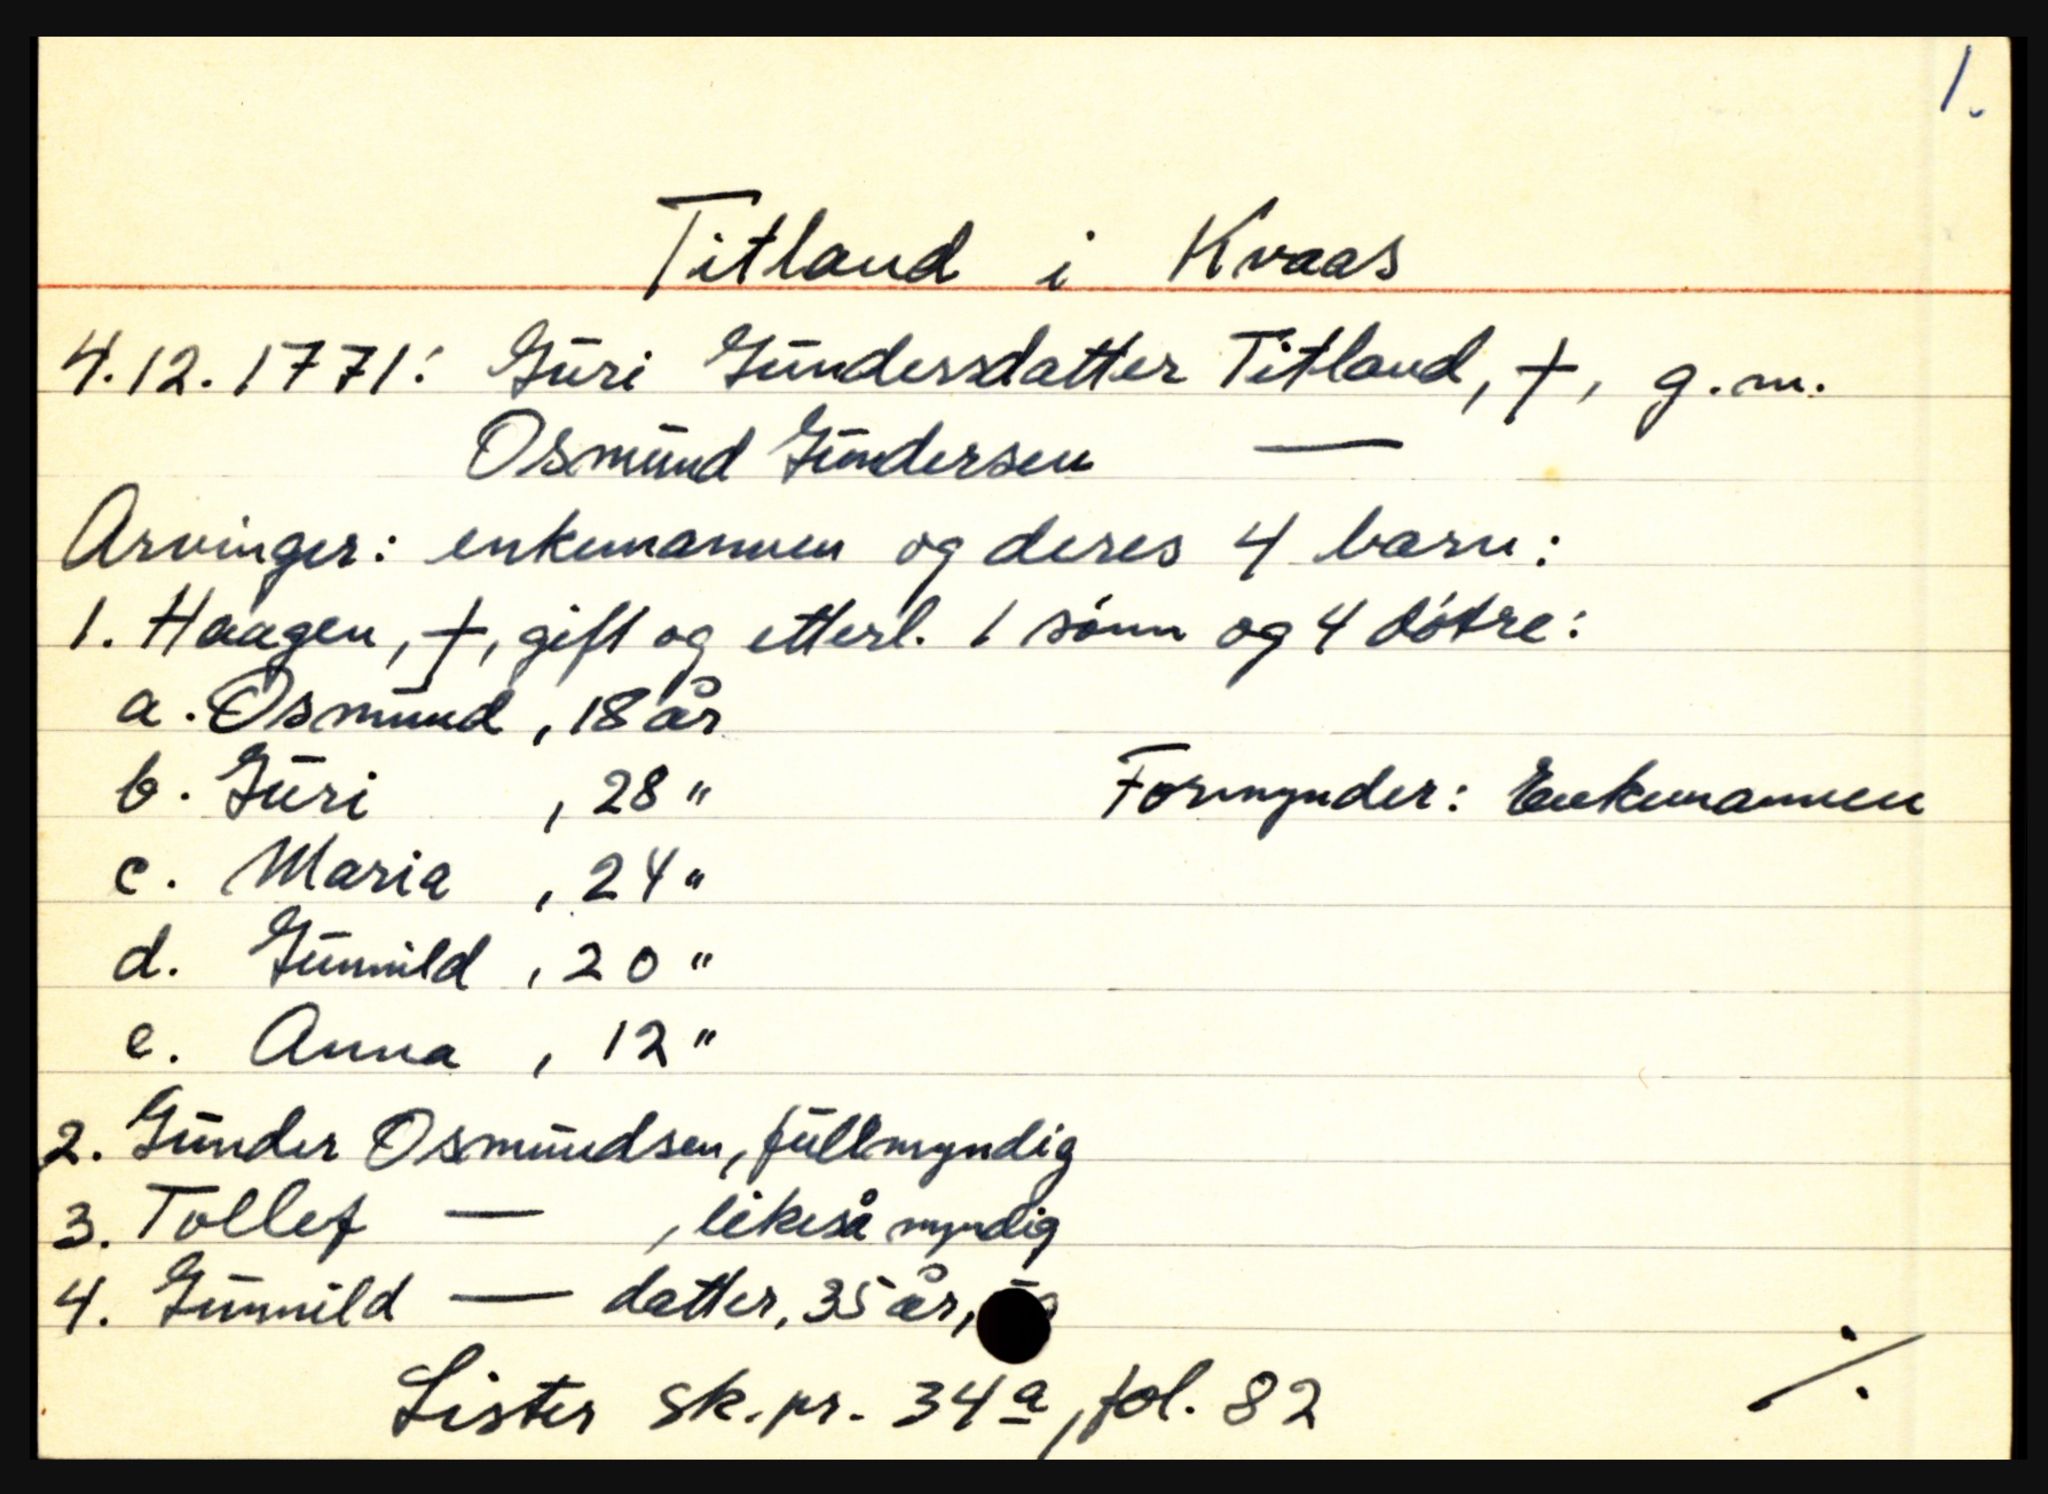 1.
Titland i Kvaas
4.12.1771: Guri Gundersdatter Titland, †, g.m.
Osmund Gundersen —
Arvinger: enkemannen og deres 4 barn:
1. Haagen, †, gift og etterl. 1 sønn og 4 døtre:
a. Osmund, 18 år
b. Guri , 28 " Formynder: Enkemannen
c. Maria , 24 "
d. Gunnild , 20 "
e. Anna , 12 "
2. Gunder Osmundsen, fullmyndig
3. Tollef — , likeså myndig
4. Gunnild — datter, 35 år,
Lister sk.pr. 34 a, fol. 82
./.